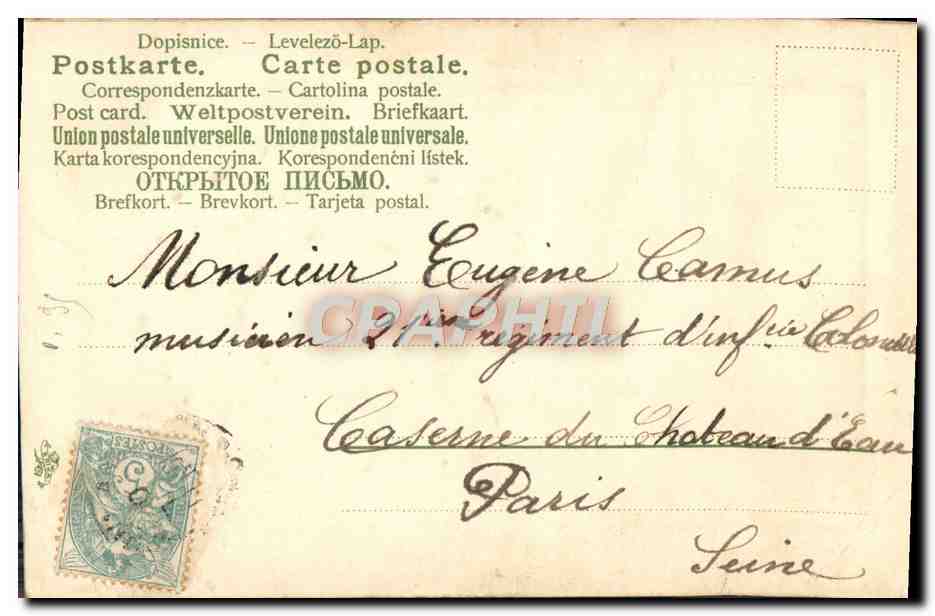 Dopisnice. – Levelező-Lap.
Postkarte. Carte postale.
Correspondenzkarte. – Cartolina postale.
Post card. Weltpostverein. Briefkaart.
Union postale universelle. Unione postale universale.
Karta korespondencyjna. Korespondenčni lístek.
ОТКРЫТОЕ ПИСЬМО.
Brefkort. – Brevkort. – Tarjeta postal.
Monsieur Eugène Camus
CPARHTI
musicien 21 régiment d'inf.ie
Caserne du Chateau d'Eau
Paris
Seine
POSTES
5